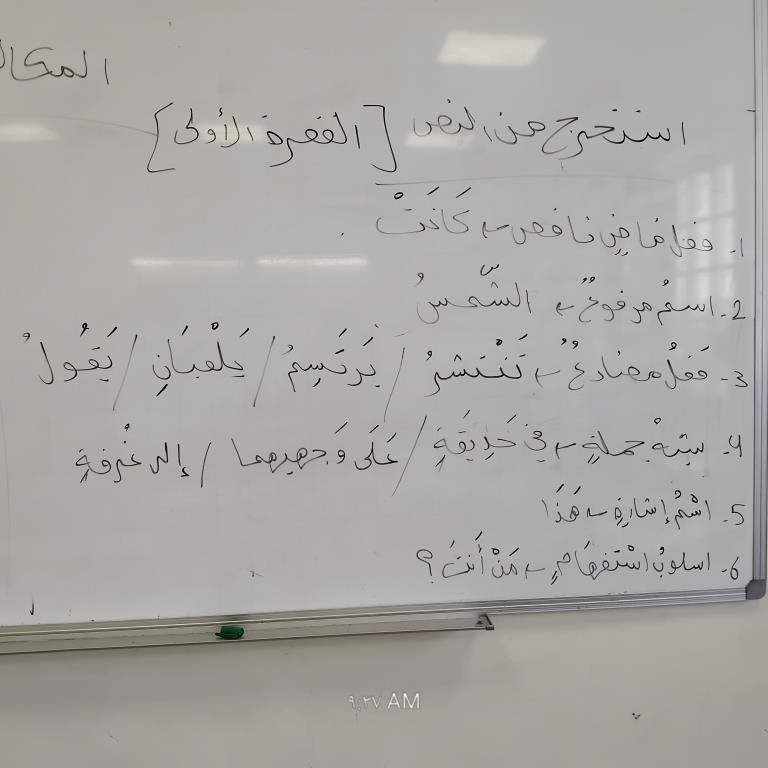 المكا
استخرج من النص [الفقرة الأولى]
1- فعل مَاضٍ ناقص ← كَانَتْ .
2- اسمٌ مرفوعٌ ← الشّمسُ
3- فعلٌ مضارعٌ ← تَنْتَشرُ / يَرتَسِمُ / يَلْعبَانِ / يَقُولُ
4- شبْهُ جملةٍ ← في حَدِيقَةٍ / عَلَى وَجهيهما / إلى غُرفةٍ
5- اسْمُ إشارةٍ ← هَذَا
6- اسلوبُ اسْتفهَامٍ ← مَنْ أَنتَ؟
٩:٣٧ AM